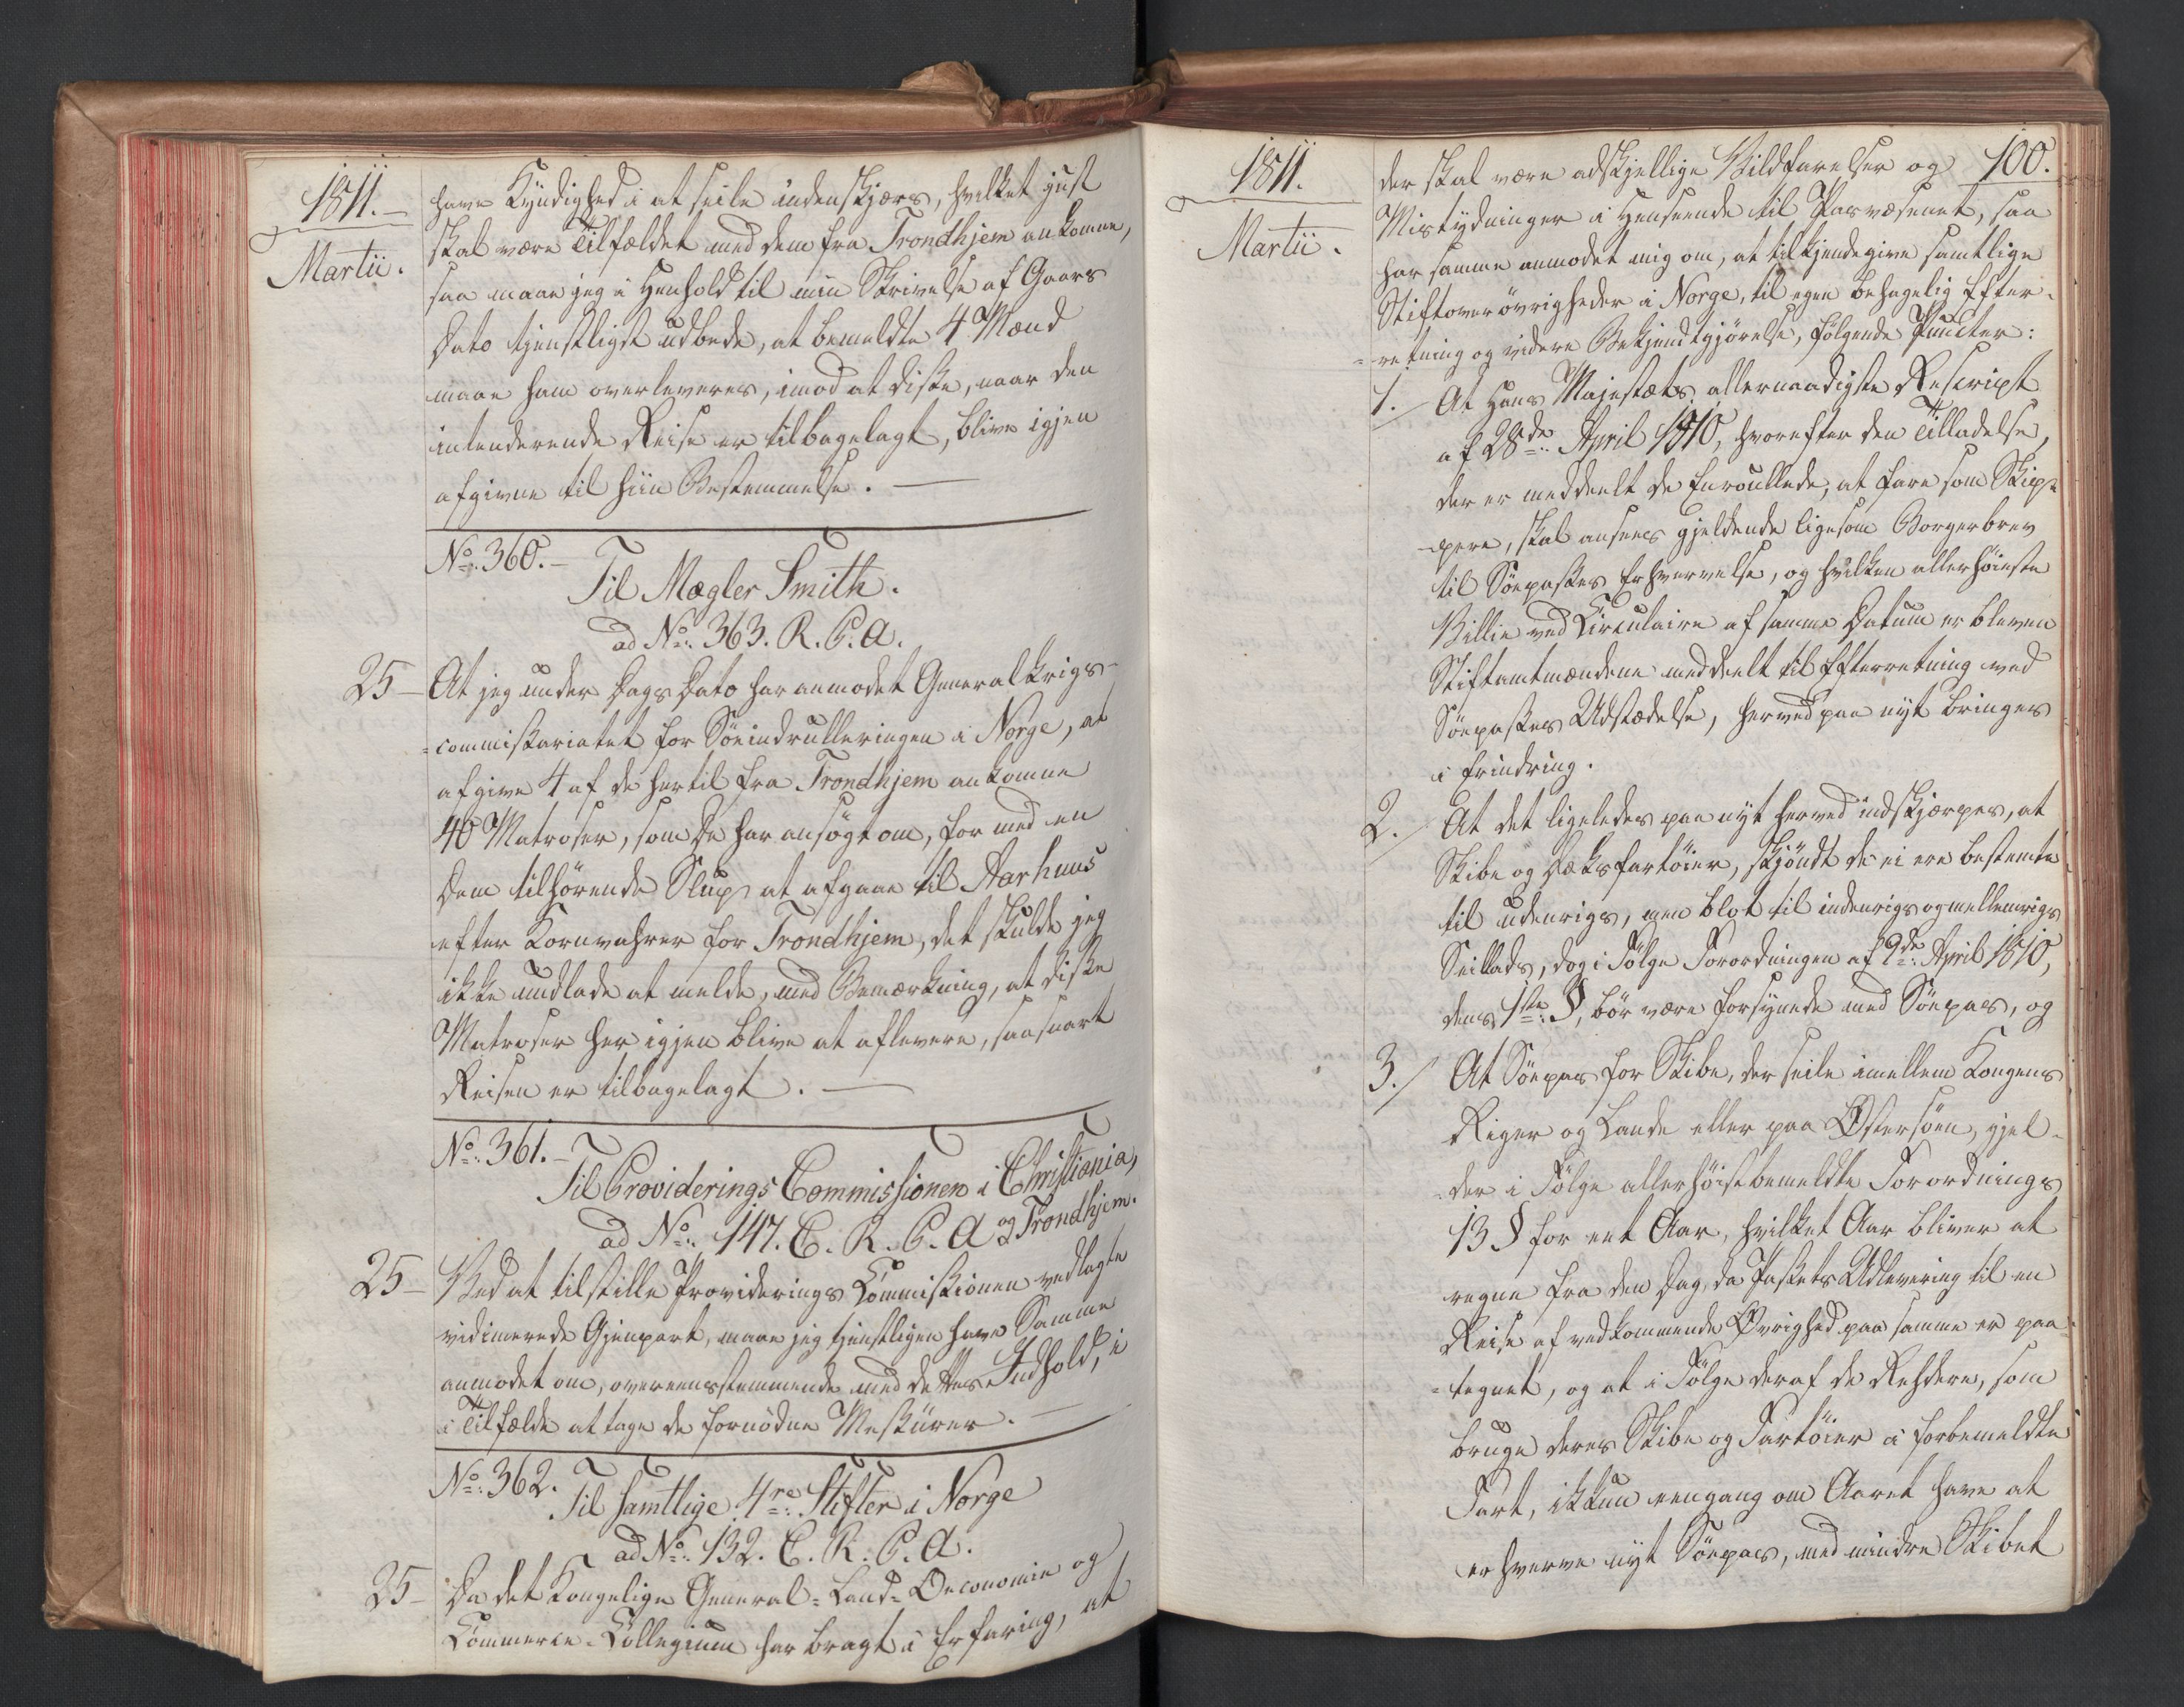 1811.
Martii.
have Kyndighed i at seile indenskjærs, hvilket just
skal være Tilfældet med dem fra Trondhjem ankomne,
saa maae jeg i Henhold til min Skrivelse af Gaars
Dato tjenstligst udbede, at bemeldte 4 Mænd
maae ham overleveres, imod at diske, naar den
intenderende Reise er tilbagelagt, blive igjen
afgivne til hiin Bestemmelse. —
No. 360. —
Til Mægler Smith.
ad No. 363. R. P. A.
25 — At jeg under Dags Dato har anmodet Generalkrigs-
=commissariatet for Søeindrulleringen i Norge, at
afgive 4 af de hertil fra Trondhjem ankomne
40 Matroser, som De har ansøgt om, for med en
Dem tilhørende Slup at afgaae til Aarhuus
efter Kornvahrer for Trondhjem, det skulde jeg
ikke undlade at melde, med Bemærkning, at diske
Matroser her igjen blive at aflevere, saasnart
Reisen er tilbagelagt. —
No. 361. —
Til Providerings Commissionen i Christiania,
ad No. 147. C. R. P. A og Trondhjem.
25 — Ved at tilstille Providerings Commissionen vedlagte
vidimerede Gjenpart, maae jeg tjenstligen have Samme
anmodet om, overeensstemmende med dettes Indhold, i
i Tilfælde at tage de fornødne Mesürer. —
No. 362.
Til samtlige 4re Stifter i Norge
ad No. 132. C. R. P. A.
25 — Da det Kongelige General-Land-Oeconomie og
Commerce-Collegium har bragt i Erfaring, at
1811.
Martii.
100.
der skal være adskjellige Vildfarelser og
Mistydninger i Henseende til Pasvæsenet, saa
har samme anmodet mig om, at tilkjendegive samtlige
Stiftsoverøvrigheder i Norge, til egen behagelig Efter-
=retning og videre Bekjendtgjørelse, følgende Puncter:
1. / At Hans Majestæts allernaadigste Rescript
af 28de April 1810, hvorefter den Tilladelse,
der er meddeelt de Enroullede, at fare som Skip-
=pere, skal ansees gjeldende ligesom Borgerbrev
til Søepasses Erhvervelse, og hvilken allerhøieste
Villie ved Circulaire af samme Datum er bleven
Stiftamtmændene meddeelt til Efterretning ved
Søepasses Udstædelse, herved paa nyt bringes
i Erindring.
2. / At det ligeledes paa nyt herved indskjærpes, at
Skibe og Dæksfartøier, skjöndt de ei ere bestemte
til udenrigs, men blot til indenrigs og mellemrigs
Seillads, dog i Følge Forordningen af 9de April 1810,
dens 1ste §, bör være forsynede med Söepas, og
3. / At Söepas for Skibe, der seile imellem Kongens
Riger og Lande eller paa Østersöen, gjel-
=der i Følge allerhöistbemeldte Forordnings
13 § for eet Aar, hvilket Aar bliver at
regne fra den Dag, da Passets Udlevering til en
Reise af vedkommende Øvrighed paa samme er paa-
=tegnet, og at i Følge deraf de Rehdere, som
bruge deres Skibe og Fartöier i forbemeldte
Fart, ikkun eengang om Aaret have at
erhverve nyt Söepas, med mindre Skibet